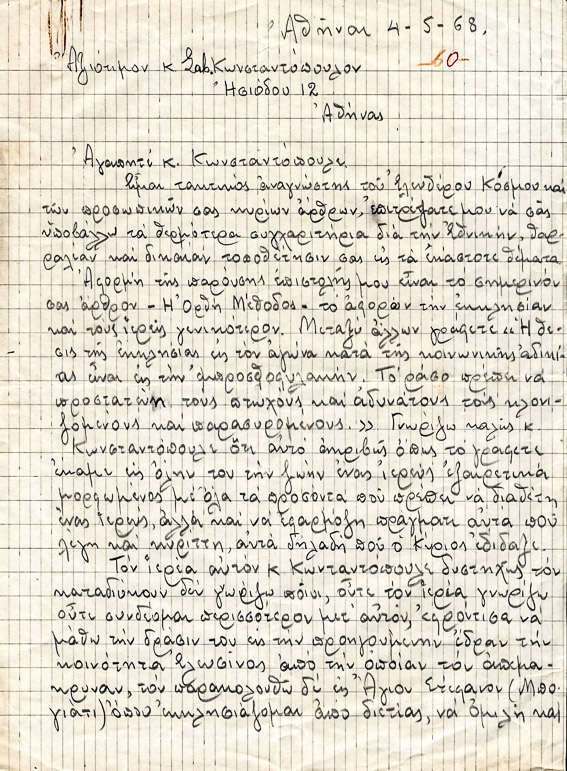 Ἀθῆναι 4-5-68.
-60-
Ἀξιότιμον κ Σαβ. Κωνσταντόπουλον
Ἡσιόδου 12
Ἀθήνας
Ἀγαπητέ κ. Κωνσταντόπουλε
Εἶμαι τακτικός ἀναγνώστης τοῦ Ἐλευθέρου Κόσμου καί
τῶν προσωπικῶν σας κυρίων ἄρθρων, ἐπιτρέψατέ μου νά σᾶς
ὑποβάλλω τά θερμότερα συγχαρητήρια διά τήν ἐθνικήν, θαρ-
ραλέαν καί δικαίαν τοποθέτησιν σας εἰς τά ἑκάστοτε θέματα
Ἀφορμή τῆς παρούσης ἐπιστολῆς μου εἶναι τό σημερινόν
σας ἄρθρον - Ἡ Ὀρθή Μέθοδος - τό ἀφορῶν τήν ἐκκλησίαν
καί τούς ἱερεῖς γενικότερον. Μεταξύ ἄλλων γράφετε «Ἡ θέ-
σις τῆς ἐκκλησίας εἰς τόν ἀγῶνα κατά τῆς κοινωνικῆς ἀδικί-
ας εἶναι εἰς τήν ἐμπροσθοφυλακήν. Τό ράσο πρέπει νά
προστατεύη τους πτωχούς καί ἀδυνάτους τούς κλονι-
ζομένους καί παρασυρομένους.» Γνωρίζω καλῶς κ.
Κωνσταντόπουλε ὅτι αὐτό ἀκριβῶς ὅπως τό γράφετε
ἔκαμε εἰς ὅλην του τήν ζωήν ἕνας ἱερεύς ἐξαιρετικά
μορφωμένος μέ ὅλα τά προσόντα πού πρέπει νά διαθέτη
ἕνας ἱερεύς, ἀλλά καί νά ἐφαρμόζη πράγματι αὐτά πού
λέγη καί κηρύττη, αὐτά δηλαδή πού ὁ Κύριος ἐδίδαξε.
Τόν ἱερέα αὐτόν κ Κωνταντόπουλε δυστηχῶς τόν
καταδιώκουν δέν γωρίζω ποῖοι, οὔτε τόν ἱερέα γνωρίζω
οὔτε συνδέομαι περισσότερον μετ' αὐτόν, ἐφρόντισα νά
μάθω τήν δρᾶσιν του εἰς τήν προηγουμένην ἕδραν τήν
κοινότητα Ἐλωσῖνος ἀπό τήν ὁποίαν τόν ἀπεμά-
κρυναν, τόν παρακολουθῶ δέ εἰς Ἅγιον Στέφανον (Μπο-
γιάτι) ὅπου ἐκκλησιάζομαι ἀπό διετίας, νά ὁμιλῆ καί